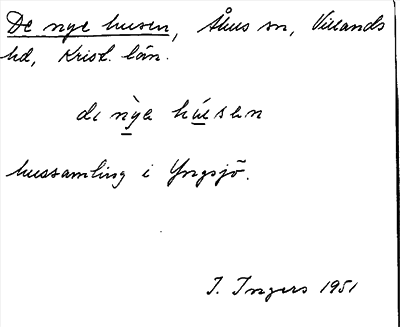 De nye husen, Åhus sn, Villands
hd, Krist. län.
de nỳa húsen
hussamling i Yngsjö.
I. Ingers 1951